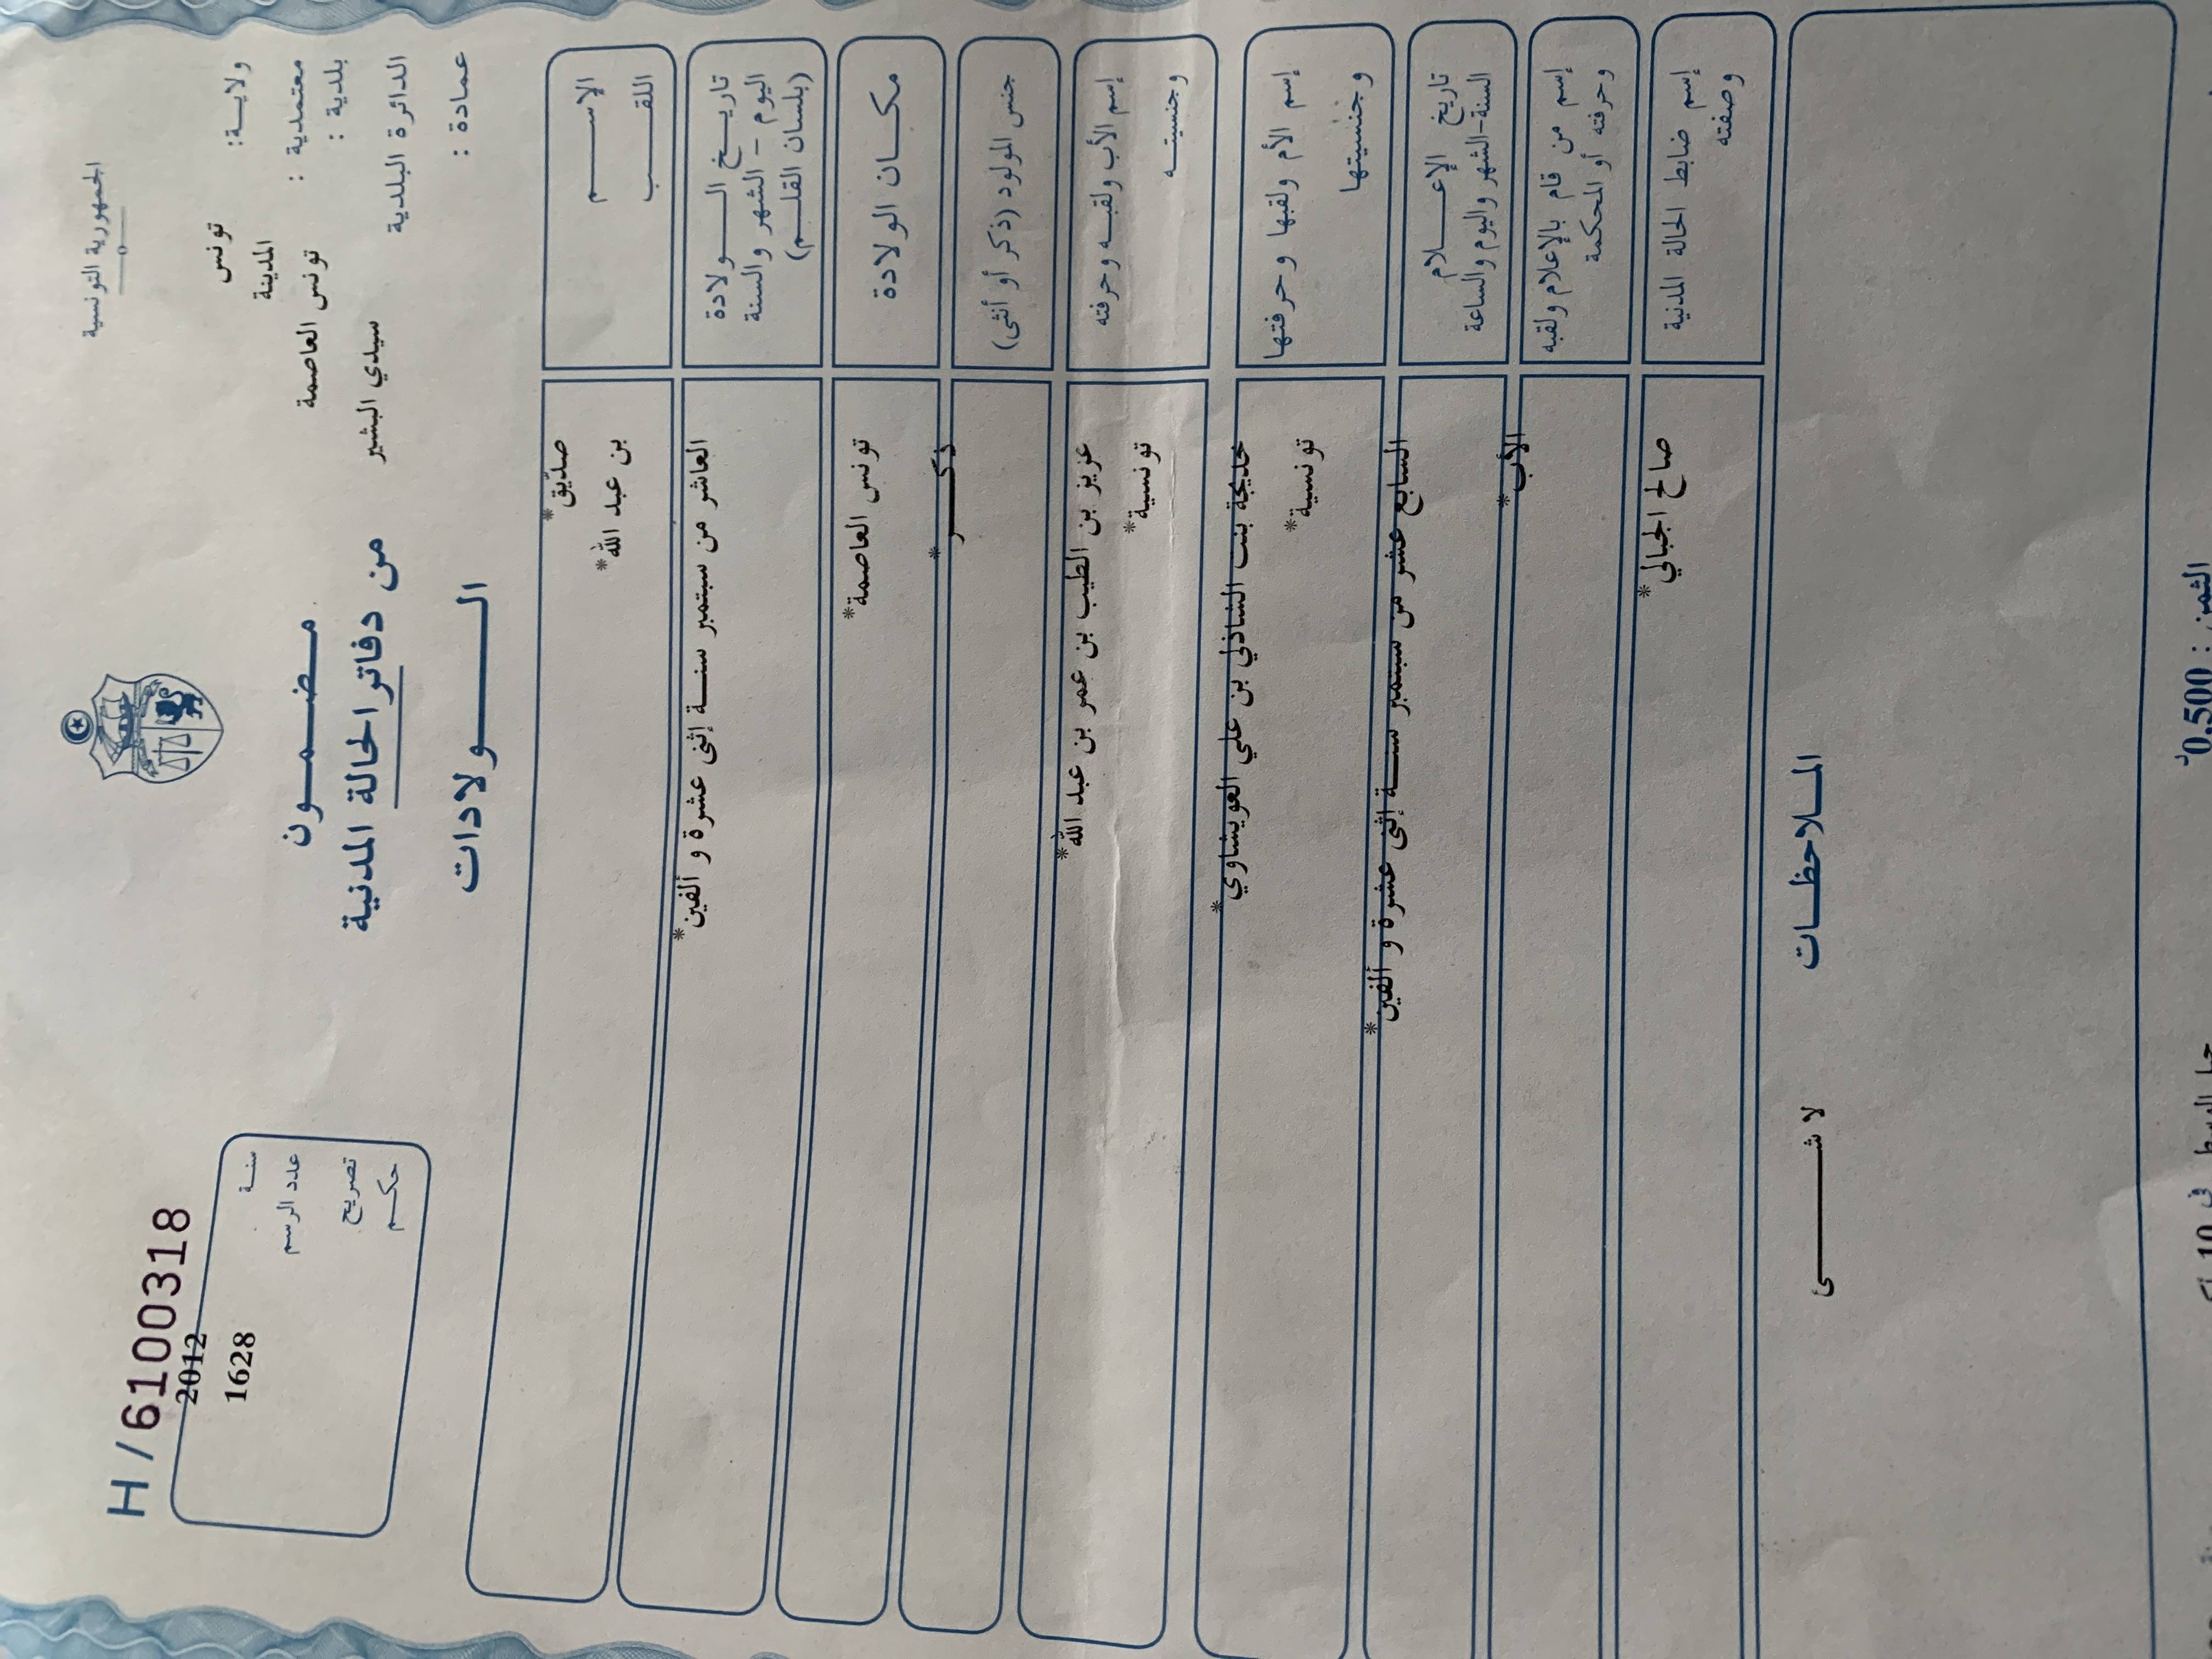 الجمهورية التونسية
H/6100318
ولايـة: تونس
معتمدية : المدينة
بلدية : تونس العاصمة
الدائرة البلدية سيدي البشير
عمادة :
سنـة 2012
عدد الرسم 1628
تصريح
حكـم
مـضـمـون
من دفاتر الحالة المدنية
الـولادات
الإسـم صدّيق*
اللقـب بن عبد الله*
تاريـخ الـولادة
اليوم - الشهر والسنة
(بلسان القلـم)
العاشر من سبتمبر سنـة إثنى عشرة و ألفين*
مكـان الولادة تونس العاصمة*
جنس المولود (ذكر أو أنثى) ذكـر*
إسم الأب ولقبـه وحرفته عزيز بن الطيب بن عمر بن عبد الله*
وجنسيتـه تونسية*
إسم الأم ولقبها وحرفتها خديجة بنت الشاذلي بن علي العويشاوي*
وجنسيتها تونسية*
تاريخ الإعـلام
السنة-الشهر واليوم والساعة
السابع عشر من سبتمبر سنـة إثنى عشرة و ألفين*
إسم من قام بالإعلام ولقبه
وحرفته أو المحكمة
الأب*
إسم ضابط الحالة المدنية
وصفته
صالح الجبالي*
المـلاحظـات
لا شـئ
الثمن : 0,500د
في 10